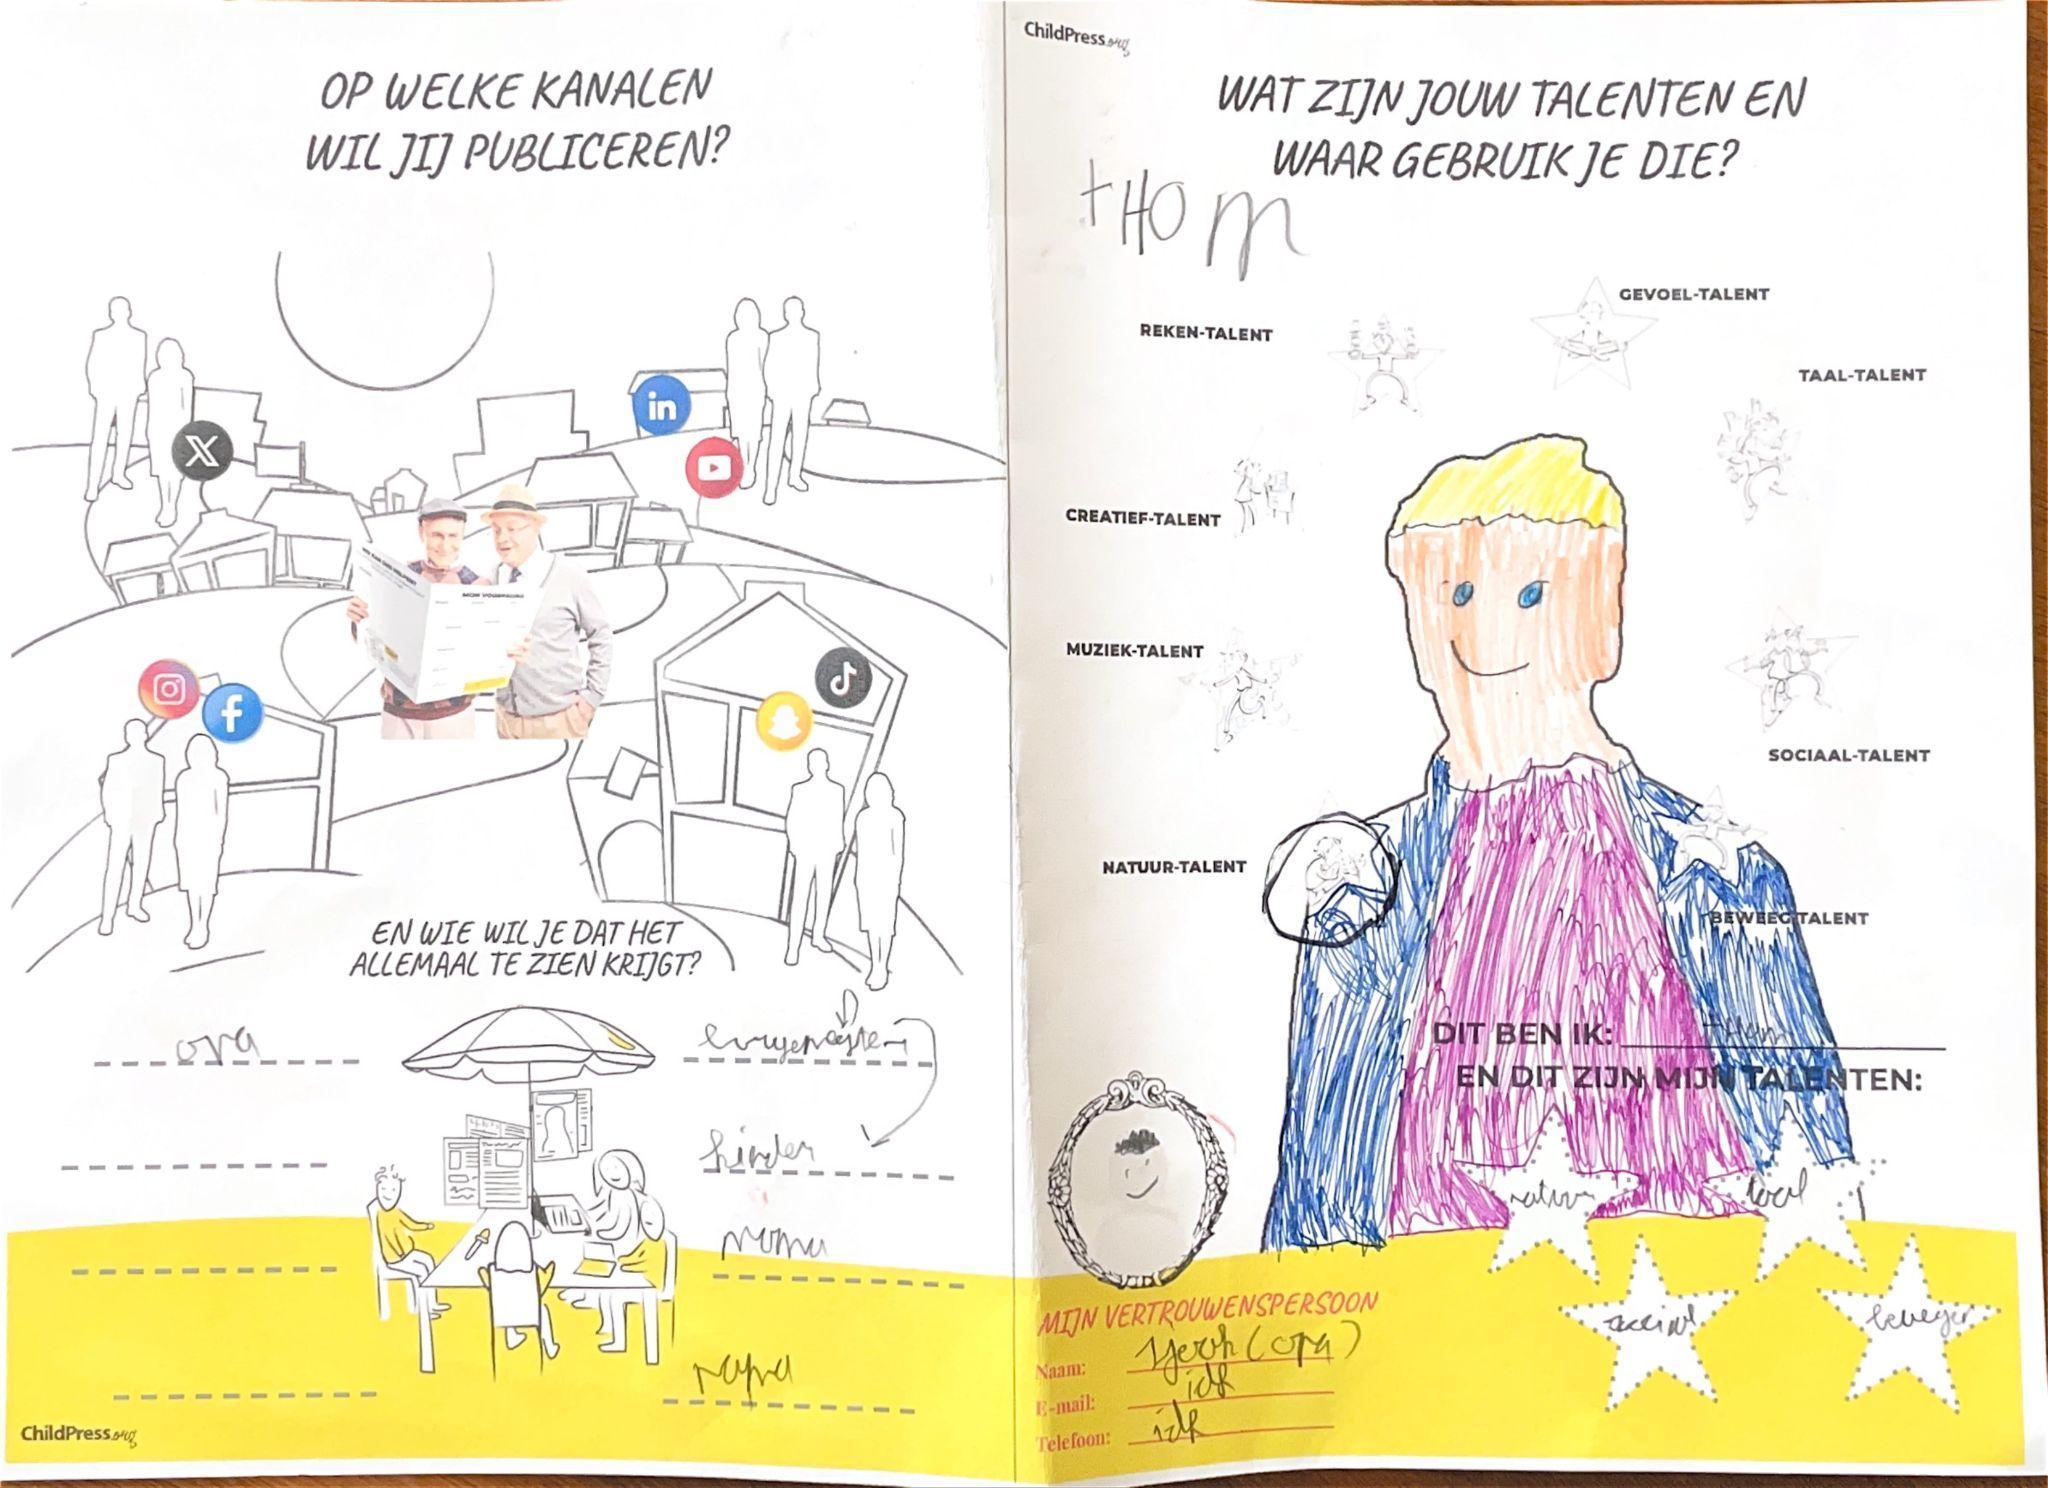 OP WELKE KANALEN
WIL JIJ PUBLICEREN?
EN WIE WIL JE DAT HET
ALLEMAAL TE ZIEN KRIJGT?
opa
kinder
mama
papa
ChildPress.org
ChildPress.org
WAT ZIJN JOUW TALENTEN EN
WAAR GEBRUIK JE DIE?
tHOm
GEVOEL-TALENT
REKEN-TALENT
TAAL-TALENT
CREATIEF-TALENT
MUZIEK-TALENT
SOCIAAL-TALENT
NATUUR-TALENT
BEWEEG-TALENT
DIT BEN IK: tHom
EN DIT ZIJN MIJN TALENTEN:
natuur
taal
sociaal
bewegen
MIJN VERTROUWENSPERSOON
Naam: (opa)
E-mail: idk
Telefoon: idk